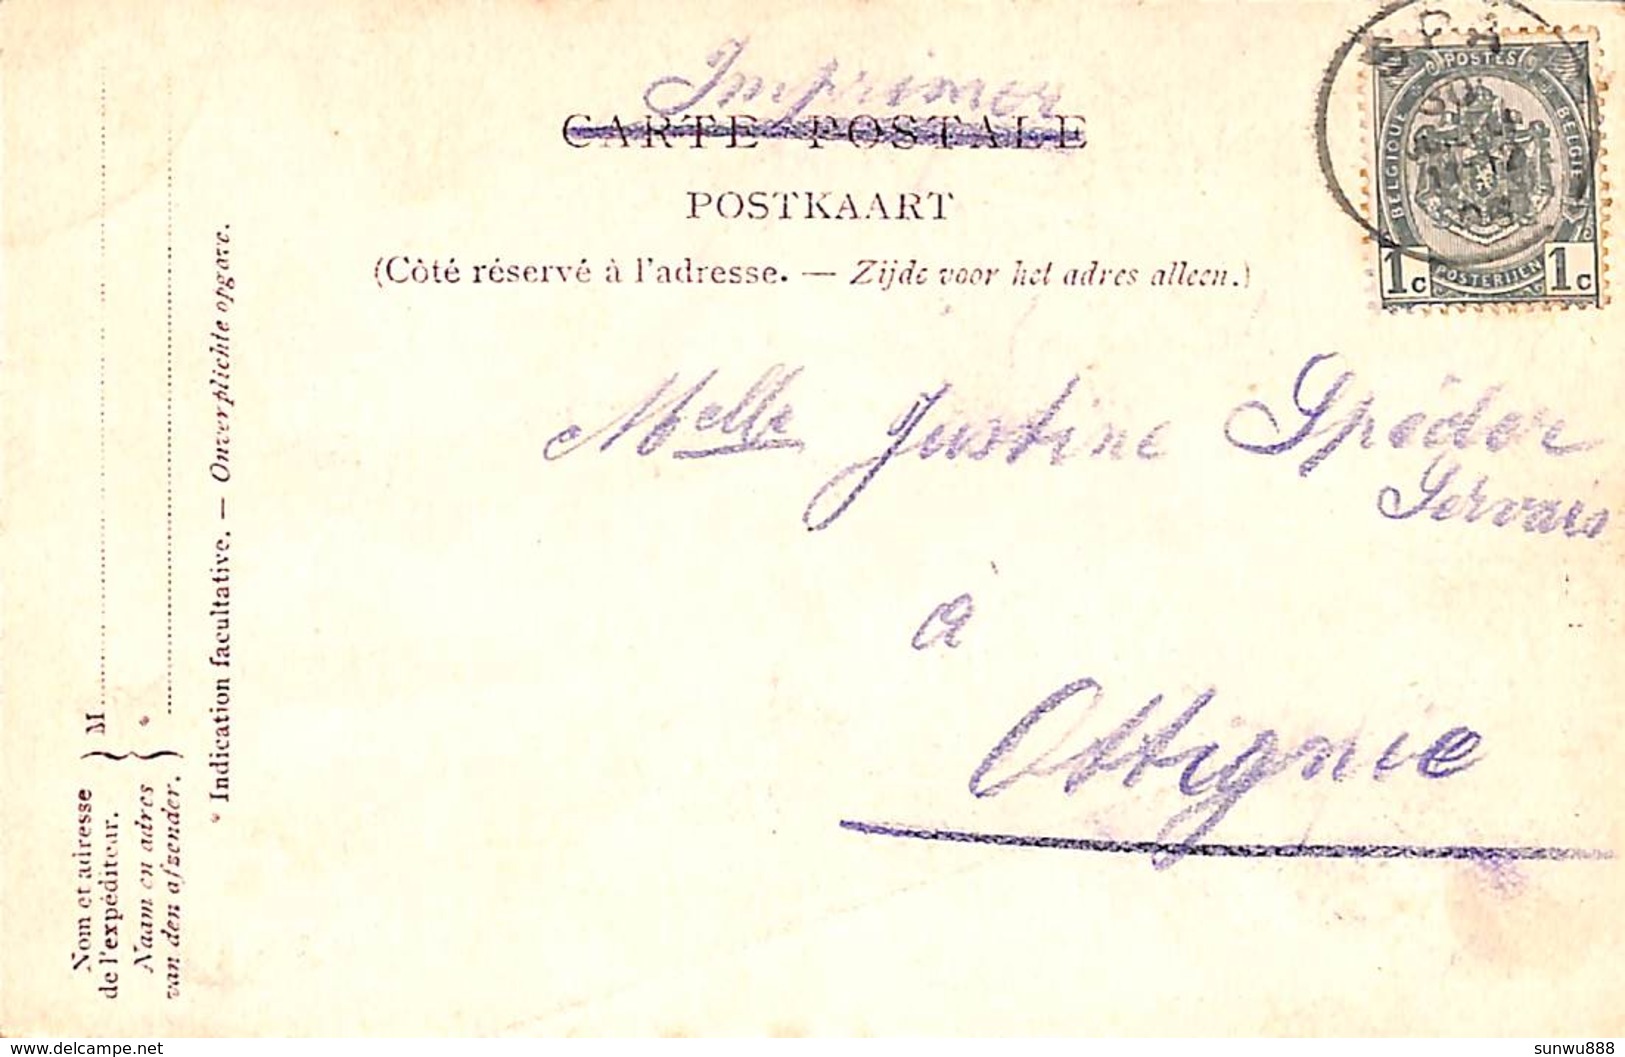 Imprimer
CARTE POSTALE
POSTKAART
(Côté réservé à l'adresse. — Zijde voor het adres alleen.)
POSTES
BELGIQUE
BELGIE
POSTERIJEN
1c 1c
Melle Justine Spéder
Servais
à
Ottignie
Nom et adresse
de l'expéditeur.
Naam en adres
van den afzender.
M
*
* Indication facultative. — Onverplichte opgave.
sunwu888